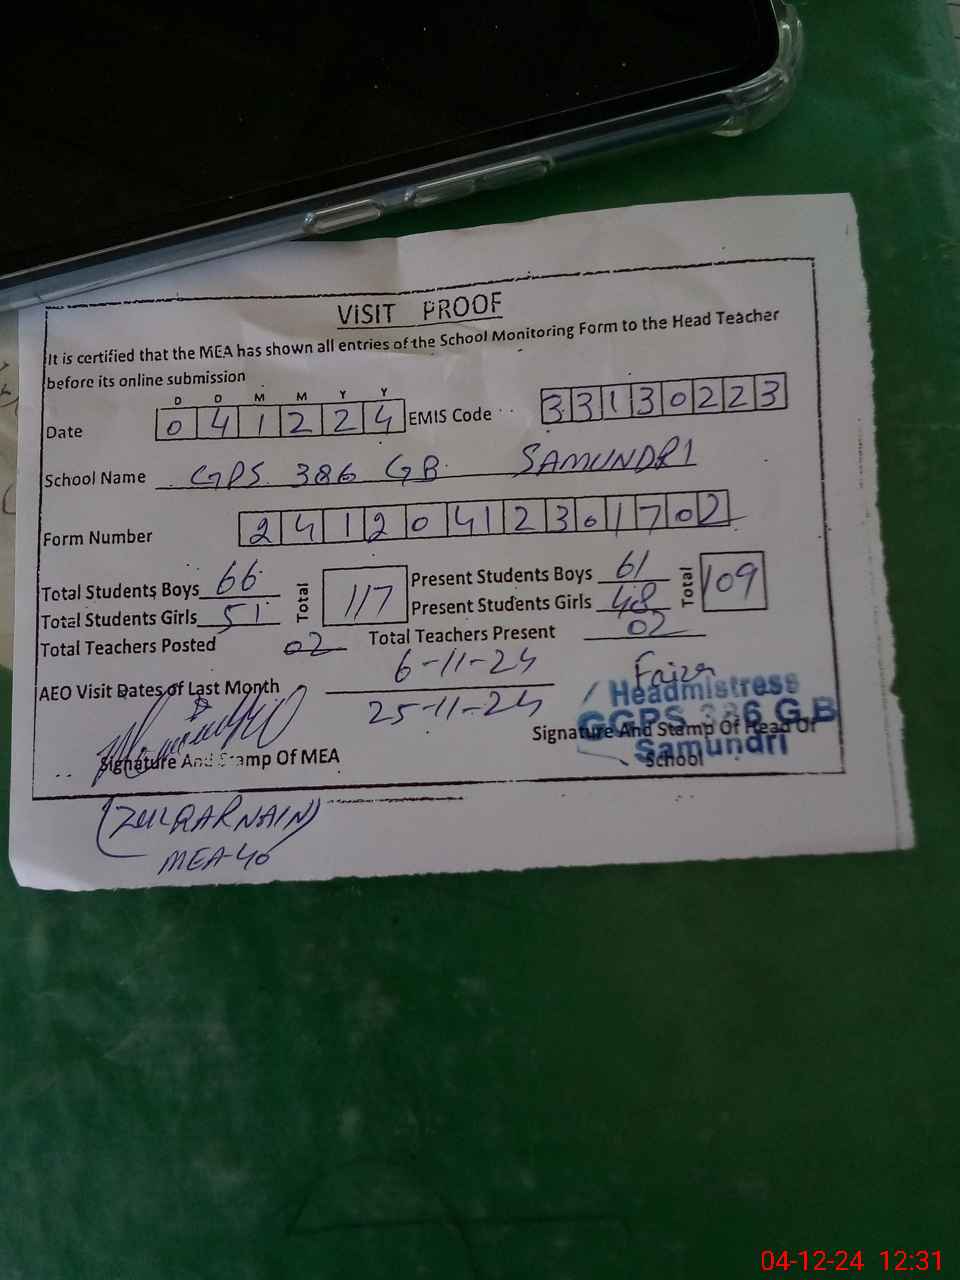 VISIT PROOF
It is certified that the MEA has shown all entries of the School Monitoring Form to the Head Teacher
before its online submission
D D M M Y Y
Date 0 4 1 2 2 4 EMIS Code 3 3 1 3 0 2 2 3
School Name GPS 386 GB SAMUNDRI
Form Number 2 4 1 2 0 4 1 2 3 0 1 7 0 2
Total Students Boys 66 Total 117 Present Students Boys 61 Total 109
Total Students Girls 51 Present Students Girls 48
Total Teachers Posted 02 Total Teachers Present 02
AEO Visit Dates of Last Month 6-11-24
25-11-24
Faiza
Headmistress
GGPS 386 G.B
Samundri
Signature And Stamp Of MEA
Signature And Stamp Of Head Of
School
(ZULQARNAIN)
MEA-40
04-12-24 12:31